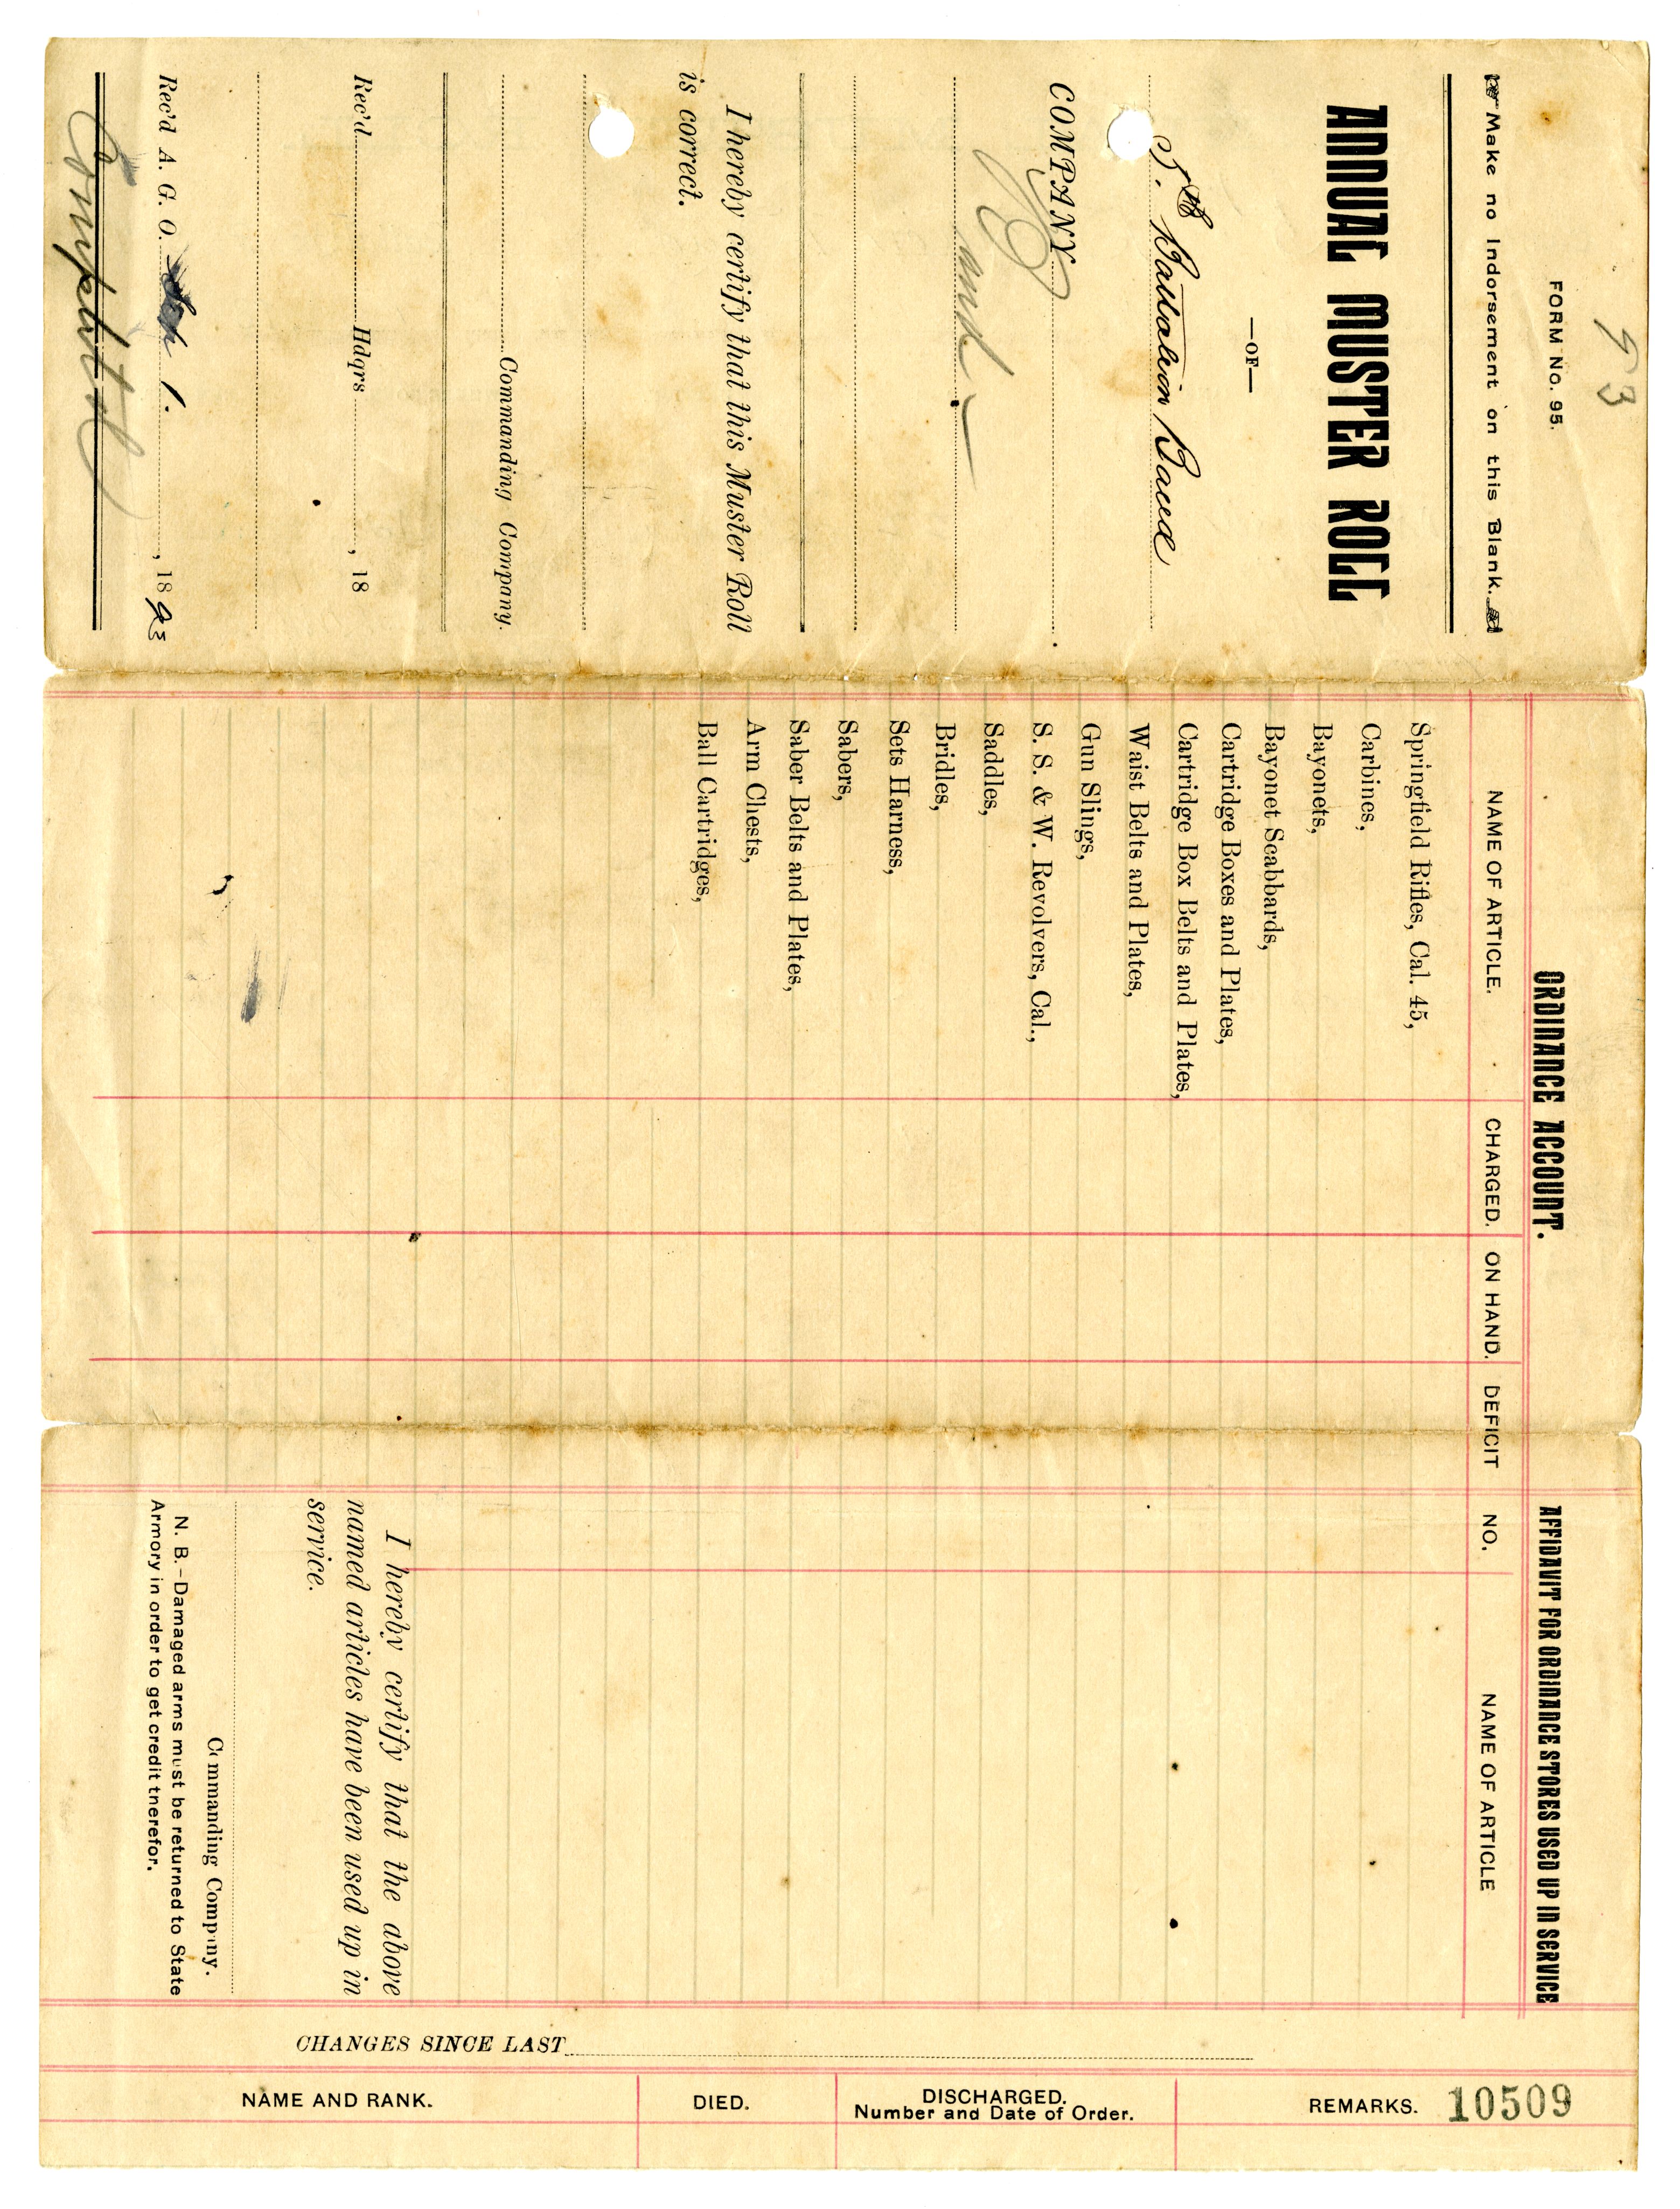 93
FORM No. 95.
Make no Indorsement on this Blank.
ANNUAL MUSTER ROLL
—OF—
5th Battalion Band
COMPANY
and
I hereby certify that this Muster Roll
is correct.
Commanding Company.
Rec'd Hdqrs , 18
Rec'd A. G. O. 1. , 1893
Completed
ORDINANCE ACCOUNT.
NAME OF ARTICLE. CHARGED. ON HAND. DEFICIT
Springfield Rifles, Cal. 45,
Carbines,
Bayonets,
Bayonet Scabbards,
Cartridge Boxes and Plates,
Cartridge Box Belts and Plates,
Waist Belts and Plates,
Gun Slings,
S. S. & W. Revolvers, Cal.,
Saddles,
Bridles,
Sets Harness,
Sabers,
Saber Belts and Plates,
Arm Chests,
Ball Cartridges,
AFFIDAVIT FOR ORDINANCE STORES USED UP IN SERVICE
NO. NAME OF ARTICLE
I hereby certify that the above
named articles have been used up in
service.
Commanding Company.
N. B.-Damaged arms must be returned to State
Armory in order to get credit therefor.
CHANGES SINCE LAST
NAME AND RANK. DIED. DISCHARGED. REMARKS. 10509
Number and Date of Order.